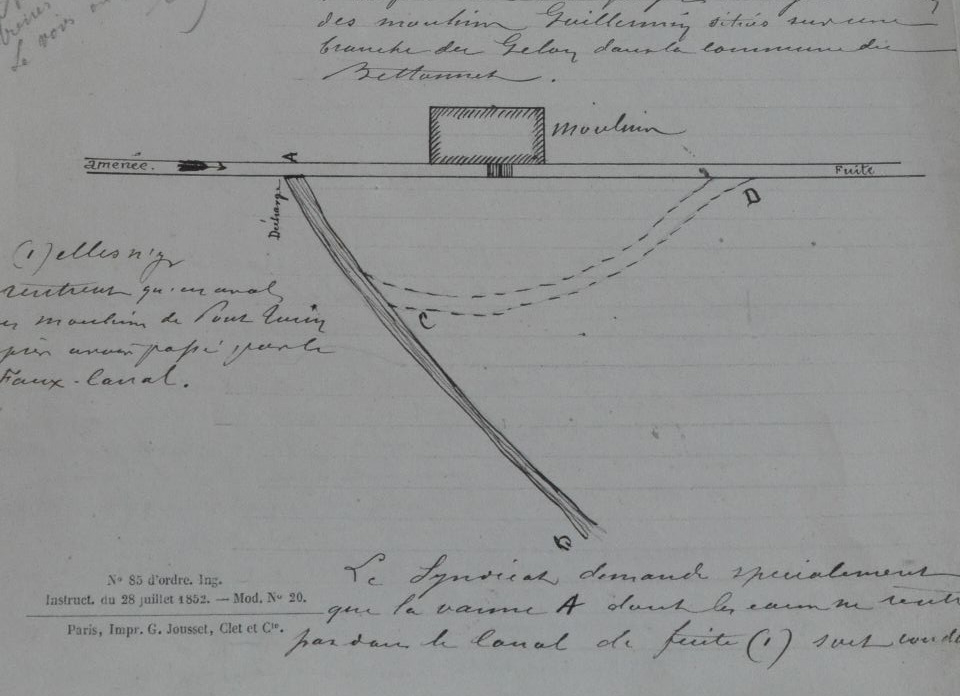 des moulins Guillermin situés sur une
branche du Gelon dans la commune de
Bettonnet.
moulin
amenée.
A
Fuite
Décharge
D
(1) elles n'y
rentrent qu'en aval
moulin de Pont
après avoir passé par le
Faux-Canal.
C
B
Le Syndicat demande spécialement
que la vanne A dont les eaux ne
pas dans le Canal de fuite (1) soit
N° 85 d'ordre. Ing.
Instruct. du 28 juillet 1852. — Mod. N° 20.
Paris, Impr. G. Jousset, Clet et Cie.